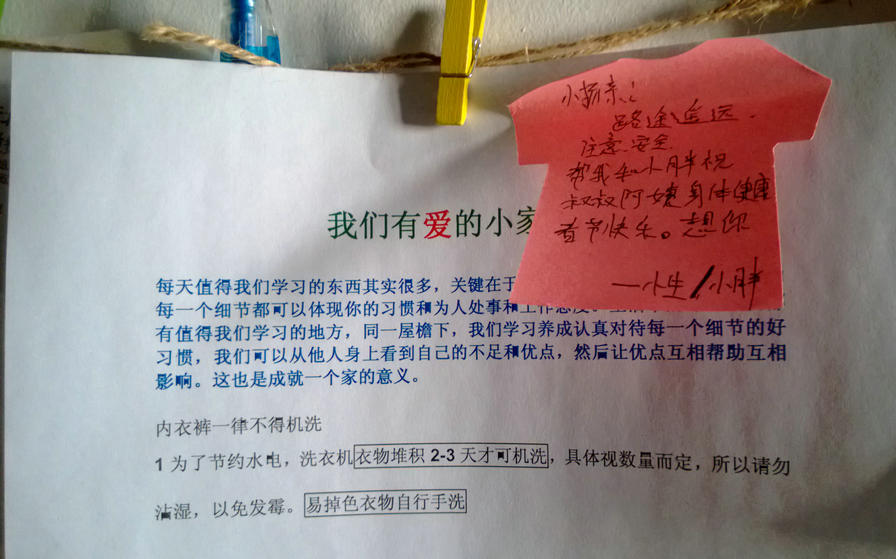 小杨亲：
路途遥远.
注意安全
帮我和小胖祝
叔叔阿姨身体健康
春节快乐。想你
——小生/小胖
我们有爱的小家
每天值得我们学习的东西其实很多，关键在于
每一个细节都可以体现你的习惯和为人处事和工作态度。
有值得我们学习的地方，同一屋檐下，我们学习养成认真对待每一个细节的好
习惯，我们可以从他人身上看到自己的不足和优点，然后让优点互相帮助互相
影响。这也是成就一个家的意义。
内衣裤一律不得机洗
1 为了节约水电，洗衣机衣物堆积 2-3 天才可机洗，具体视数量而定，所以请勿
沾湿，以免发霉。易掉色衣物自行手洗